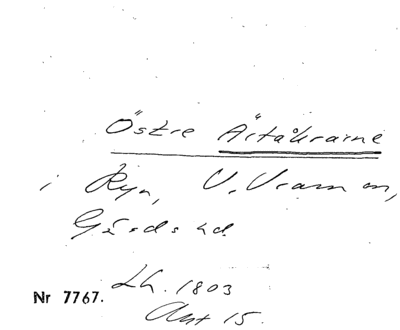 Östre Ärtåkrarne
i Ryn, V. Vram sn,
Gärds hd.
Lh. 1803
Akt 15.
Nr 7767.